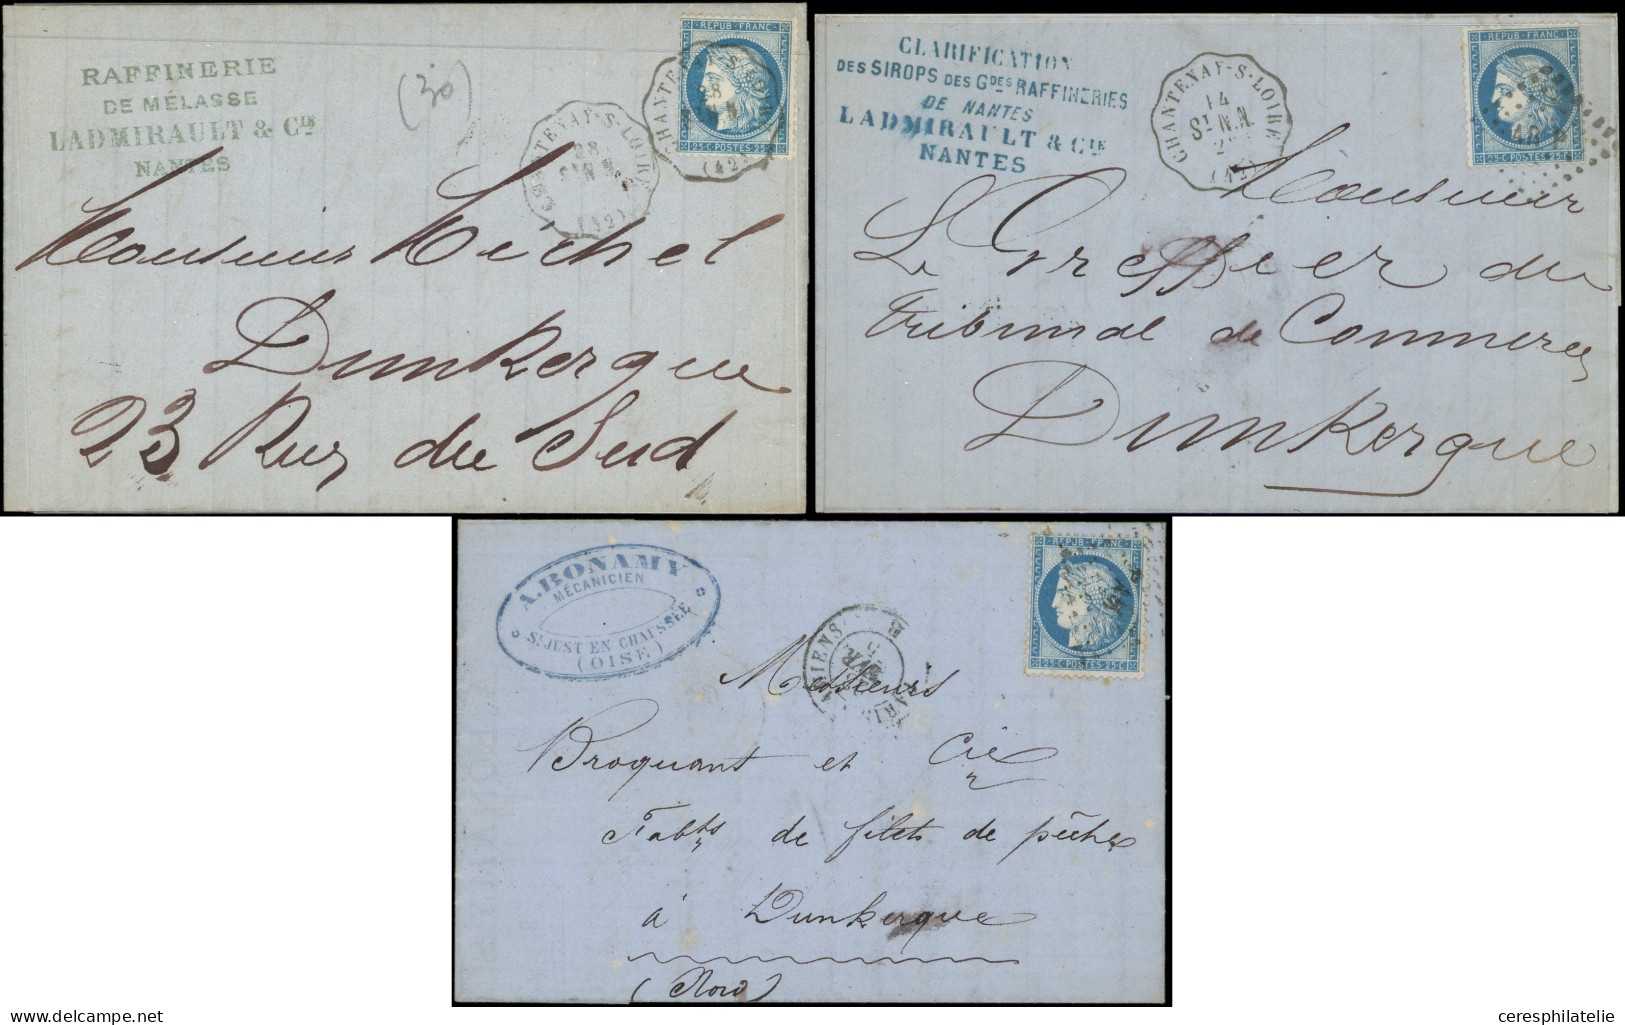 RAFFINERIE
DE MÉLASSE
LADMIRAULT & CIE
NANTES
(30)
CHANTENAY-S-LOIRE
28
ST N.N.
(42)
REPUB·FRANC
25·C·POSTES·25·C
CHANTENAY-S-LOIRE
28
(42)
Monsieur Michel
Dunkerque
23 Rue du Sud
CLARIFICATION
DES SIROPS DES GDES RAFFINERIES
DE NANTES
LADMIRAULT & CIE
NANTES
CHANTENAY-S-LOIRE
14
ST N.N.
2E
(42)
REPUB·FRANC
25·C·POSTES·25·C
Monsieur
Le Greffier du
tribunal de Commerce
Dunkerque
A. BONAMY
MÉCANICIEN
ST JUST EN CHAUSSÉE
(OISE)
AMIENS
5
REPUB·FRANC
25·C·POSTES·25·C
Messieurs
Broquant et Cie
Fabts de filets de pêche
à Dunkerque
(Nord)
ceresphilatelie